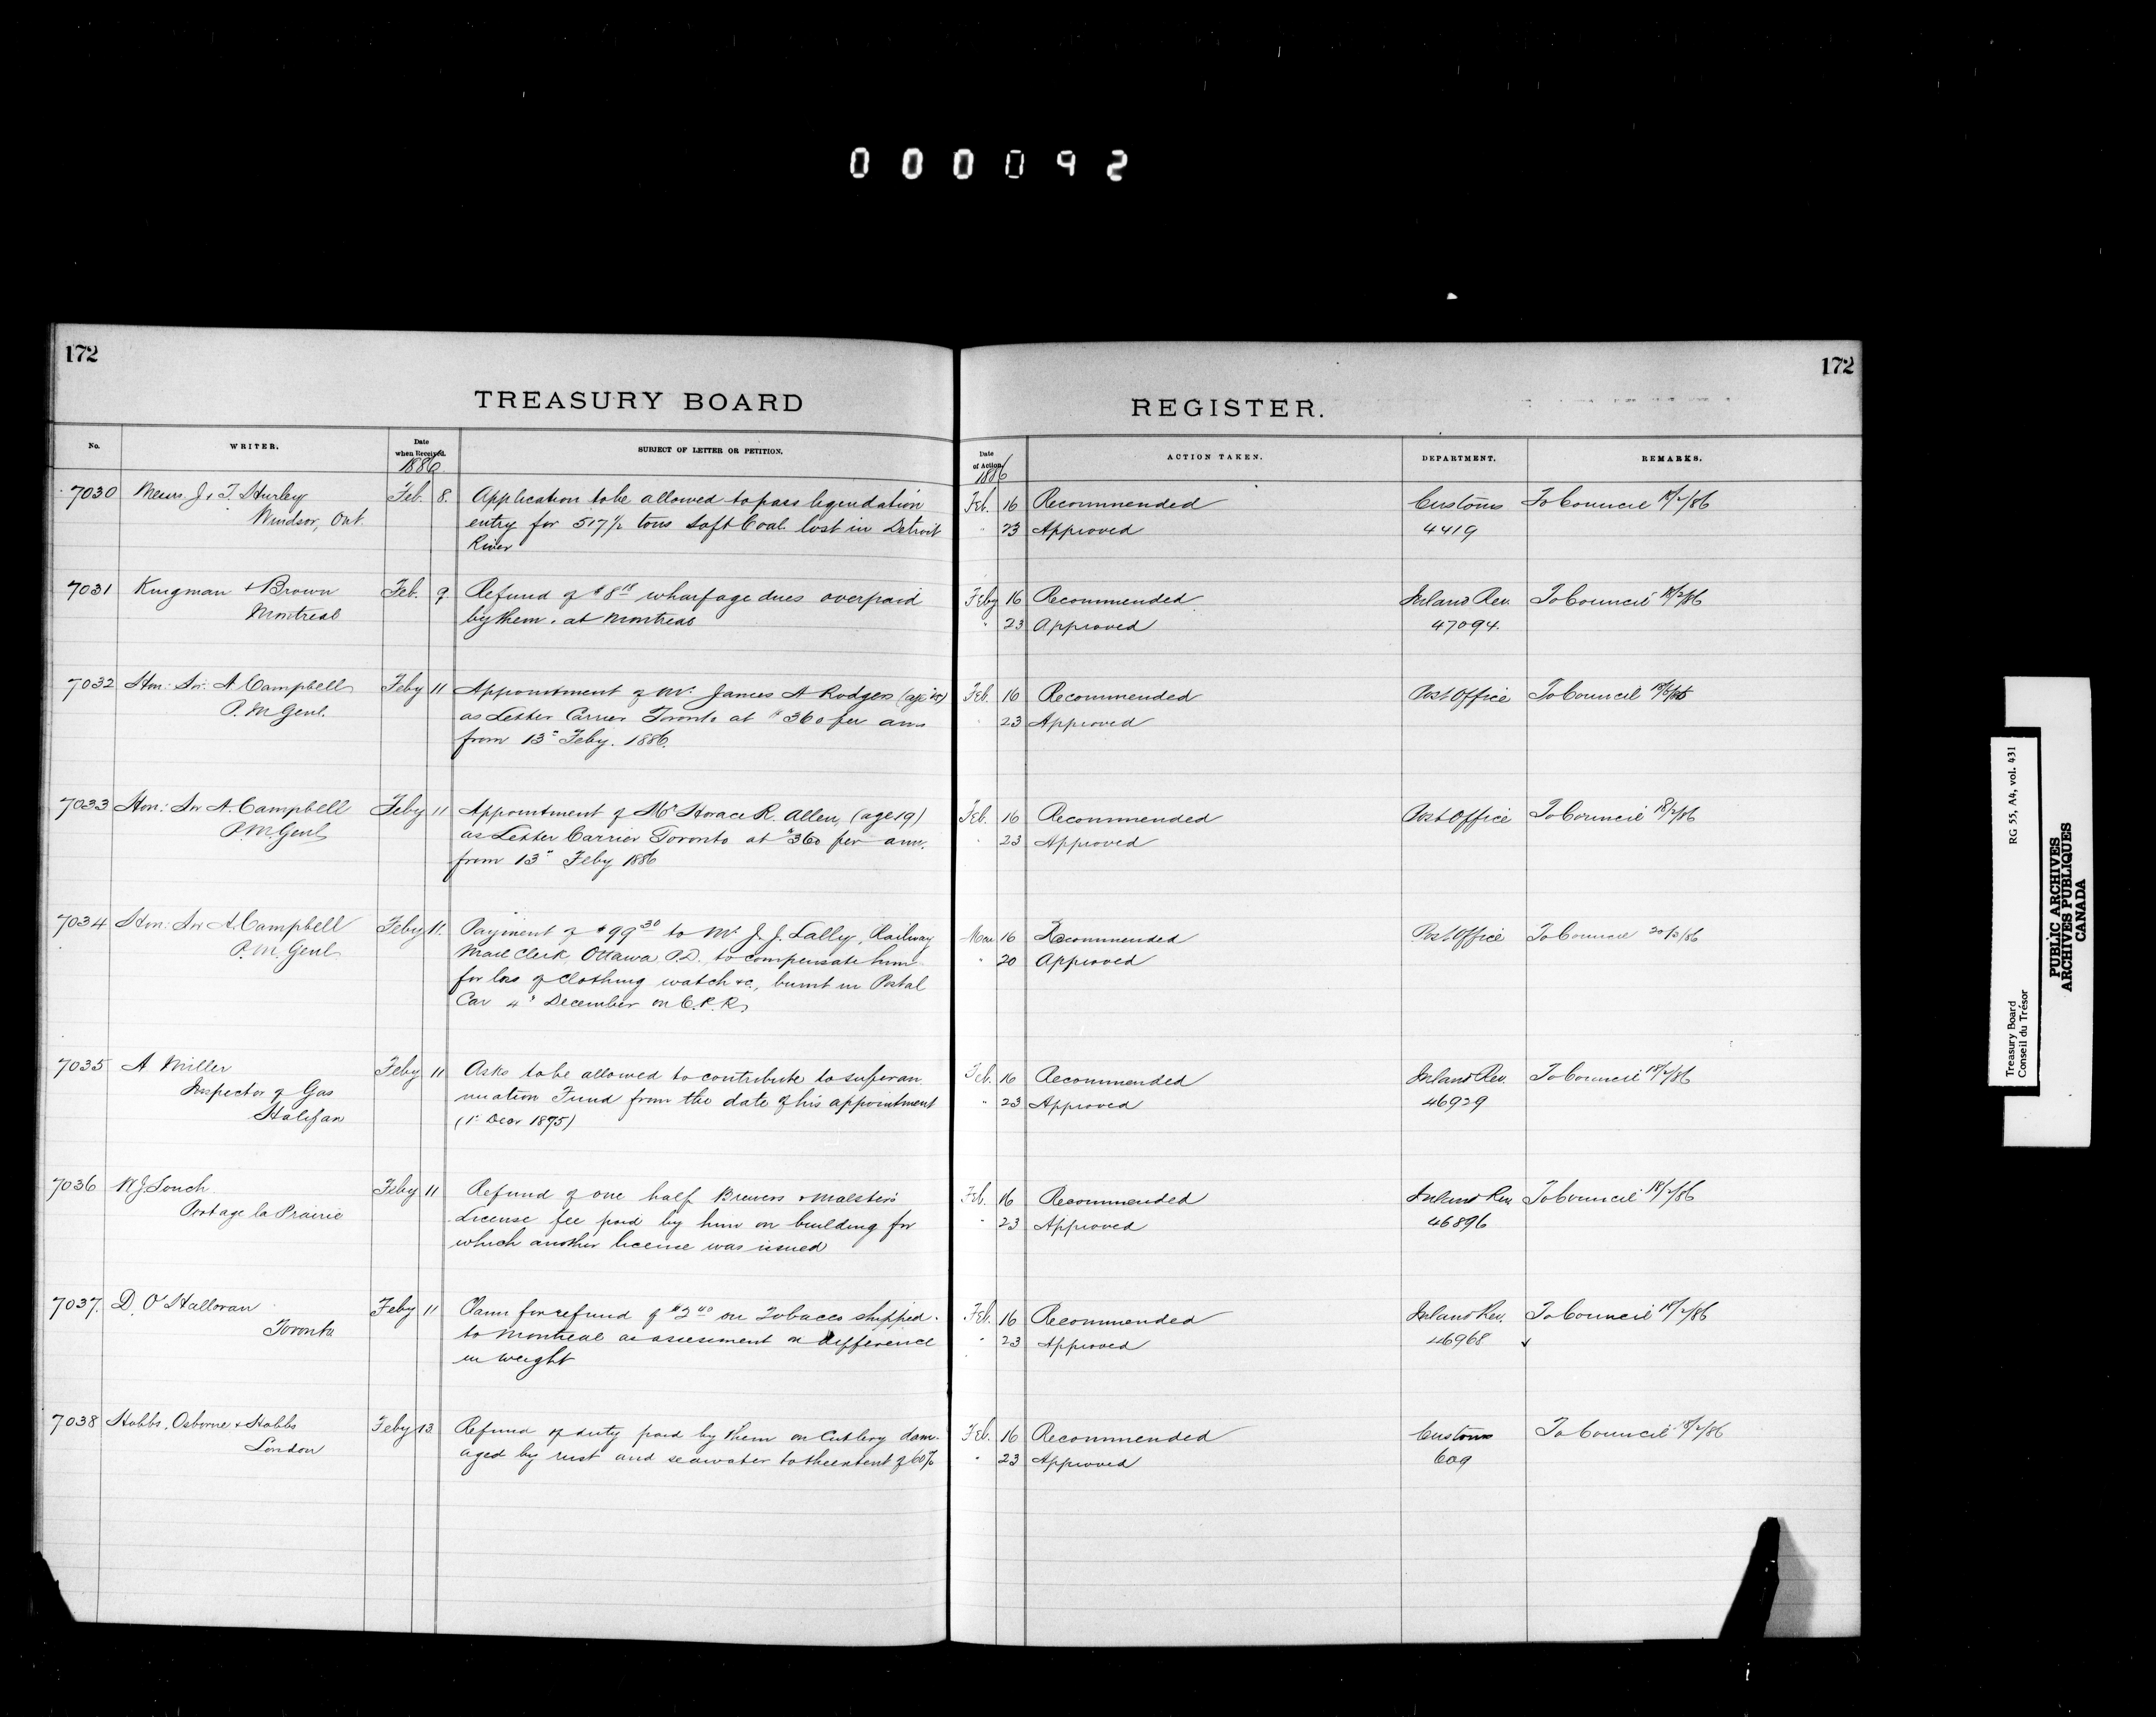 000092
172
172
TREASURY BOARD
REGISTER.
No.
WRITER.
Date when Received.
SUBJECT OF LETTER OR PETITION.
Date of Action.
ACTION TAKEN.
DEPARTMENT.
REMARKS.
1886
1886
7030 Messrs. J. & T. Hurley Feb. 8. Application to be allowed to pass legendation Feb. 16 Recommended Customs To Council 18/2/86
Windsor, Ont. entry for 517 1/2 tons Soft Coal lost in Detroit " 23 Approved 4419
River
7031 Kingman & Brown Feb. 9 Refund of $8 wharfage dues overpaid Feby 16 Recommended Inland Rev. To Council 18/2/86
Montreal by them. at Montreal " 23 Approved 47094.
7032 Hon: Sir: A Campbell Feby 11 Appointment of Mr. James A Rodgers (age Feb. 16 Recommended Post Office To Council
P. M. Genl. as Letter Carrier Toronto at $360 per ann " 23 Approved
from 13" Feby. 1886.
7033 Hon: Sir A. Campbell Feby 11 Appointment of Mr Horace R. Allen, (age 19) Feb. 16 Recommended Post Office To Council 18/2/86
P.M. Genl as Letter Carrier Toronto at $360 per ann. " 23 Approved
from 13" Feby 1886
7034 Hon: Sir A. Campbell Feby 11. Payment of $99 30 to Mr J. J. Lally, Railway Mar 16 Recommended Post Office To Council 20/3/86
P. M. Genl. Mail Clerk, Ottawa P.D. to compensate him " 20 Approved
for loss of clothing watch &c., burnt in Postal
Car 4" December on C.P.R.
7035 A Miller Feby 11 Asks to be allowed to contribute to superan Feb. 16 Recommended Inland Rev. To Council 18/2/86
Inspector of Gas nuation Fund from the date of his appointment " 23 Approved 46929
Halifax (1" Decr 1875)
7036 Feby 11 Refund of one half Brewers & Malsters Feb. 16 Recommended Inland Rev To Council 18/2/86
Portage la Prairie License fee paid by him on building for " 23 Approved 46896
which another license was issued
7037. D. O'Halloran Feby 11 Claim for refund of $2 40 on Tobacco shipped Feb. 16 Recommended Inland Rev. To Council 18/2/86
Toronto to Montreal as assessment on difference " 23 Approved 46968
in weight
7038 Hobbs, Osborne & Hobbs Feby 13 Refund of duty paid by them on Cutlery dam- Feb. 16 Recommended Customs To Council 18/2/86
London aged by rust and seawater to the extent of 60% " 23 Approved 609
Treasury Board
Conseil du Trésor
RG 55, A4, vol. 431
PUBLIC ARCHIVES
ARCHIVES PUBLIQUES
CANADA